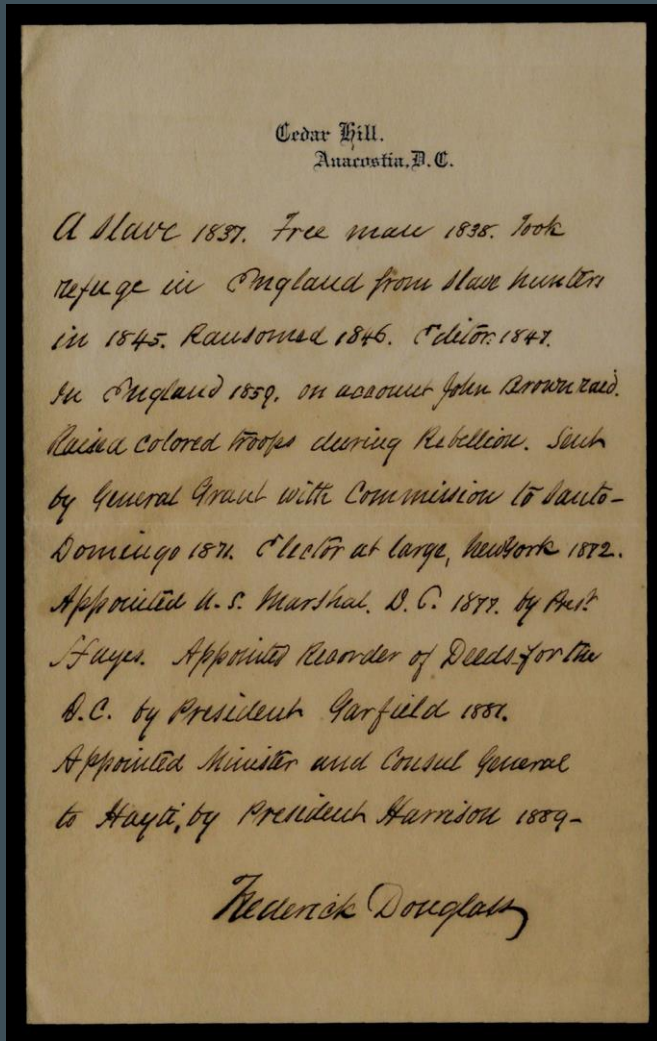 Cedar Hill.
Anacostia, D.C.
A slave 1837. Free man 1838. Took
refuge in England from slave hunters
in 1845. Ransomed 1846. Editor. 1847.
In England 1859. on account John Brown raid.
Raised colored troops during Rebellion. Sent
by General Grant with Commission to Santo-
Domingo 1871. Elector at large, New York 1872.
Appointed U. S. Marshal. D. C. 1877. by Prest
Hayes. Appointed Recorder of Deeds for the
D.C. by President Garfield 1881.
Appointed Minister and Consul General
to Hayti, by President Harrison 1889-
Frederick Douglass